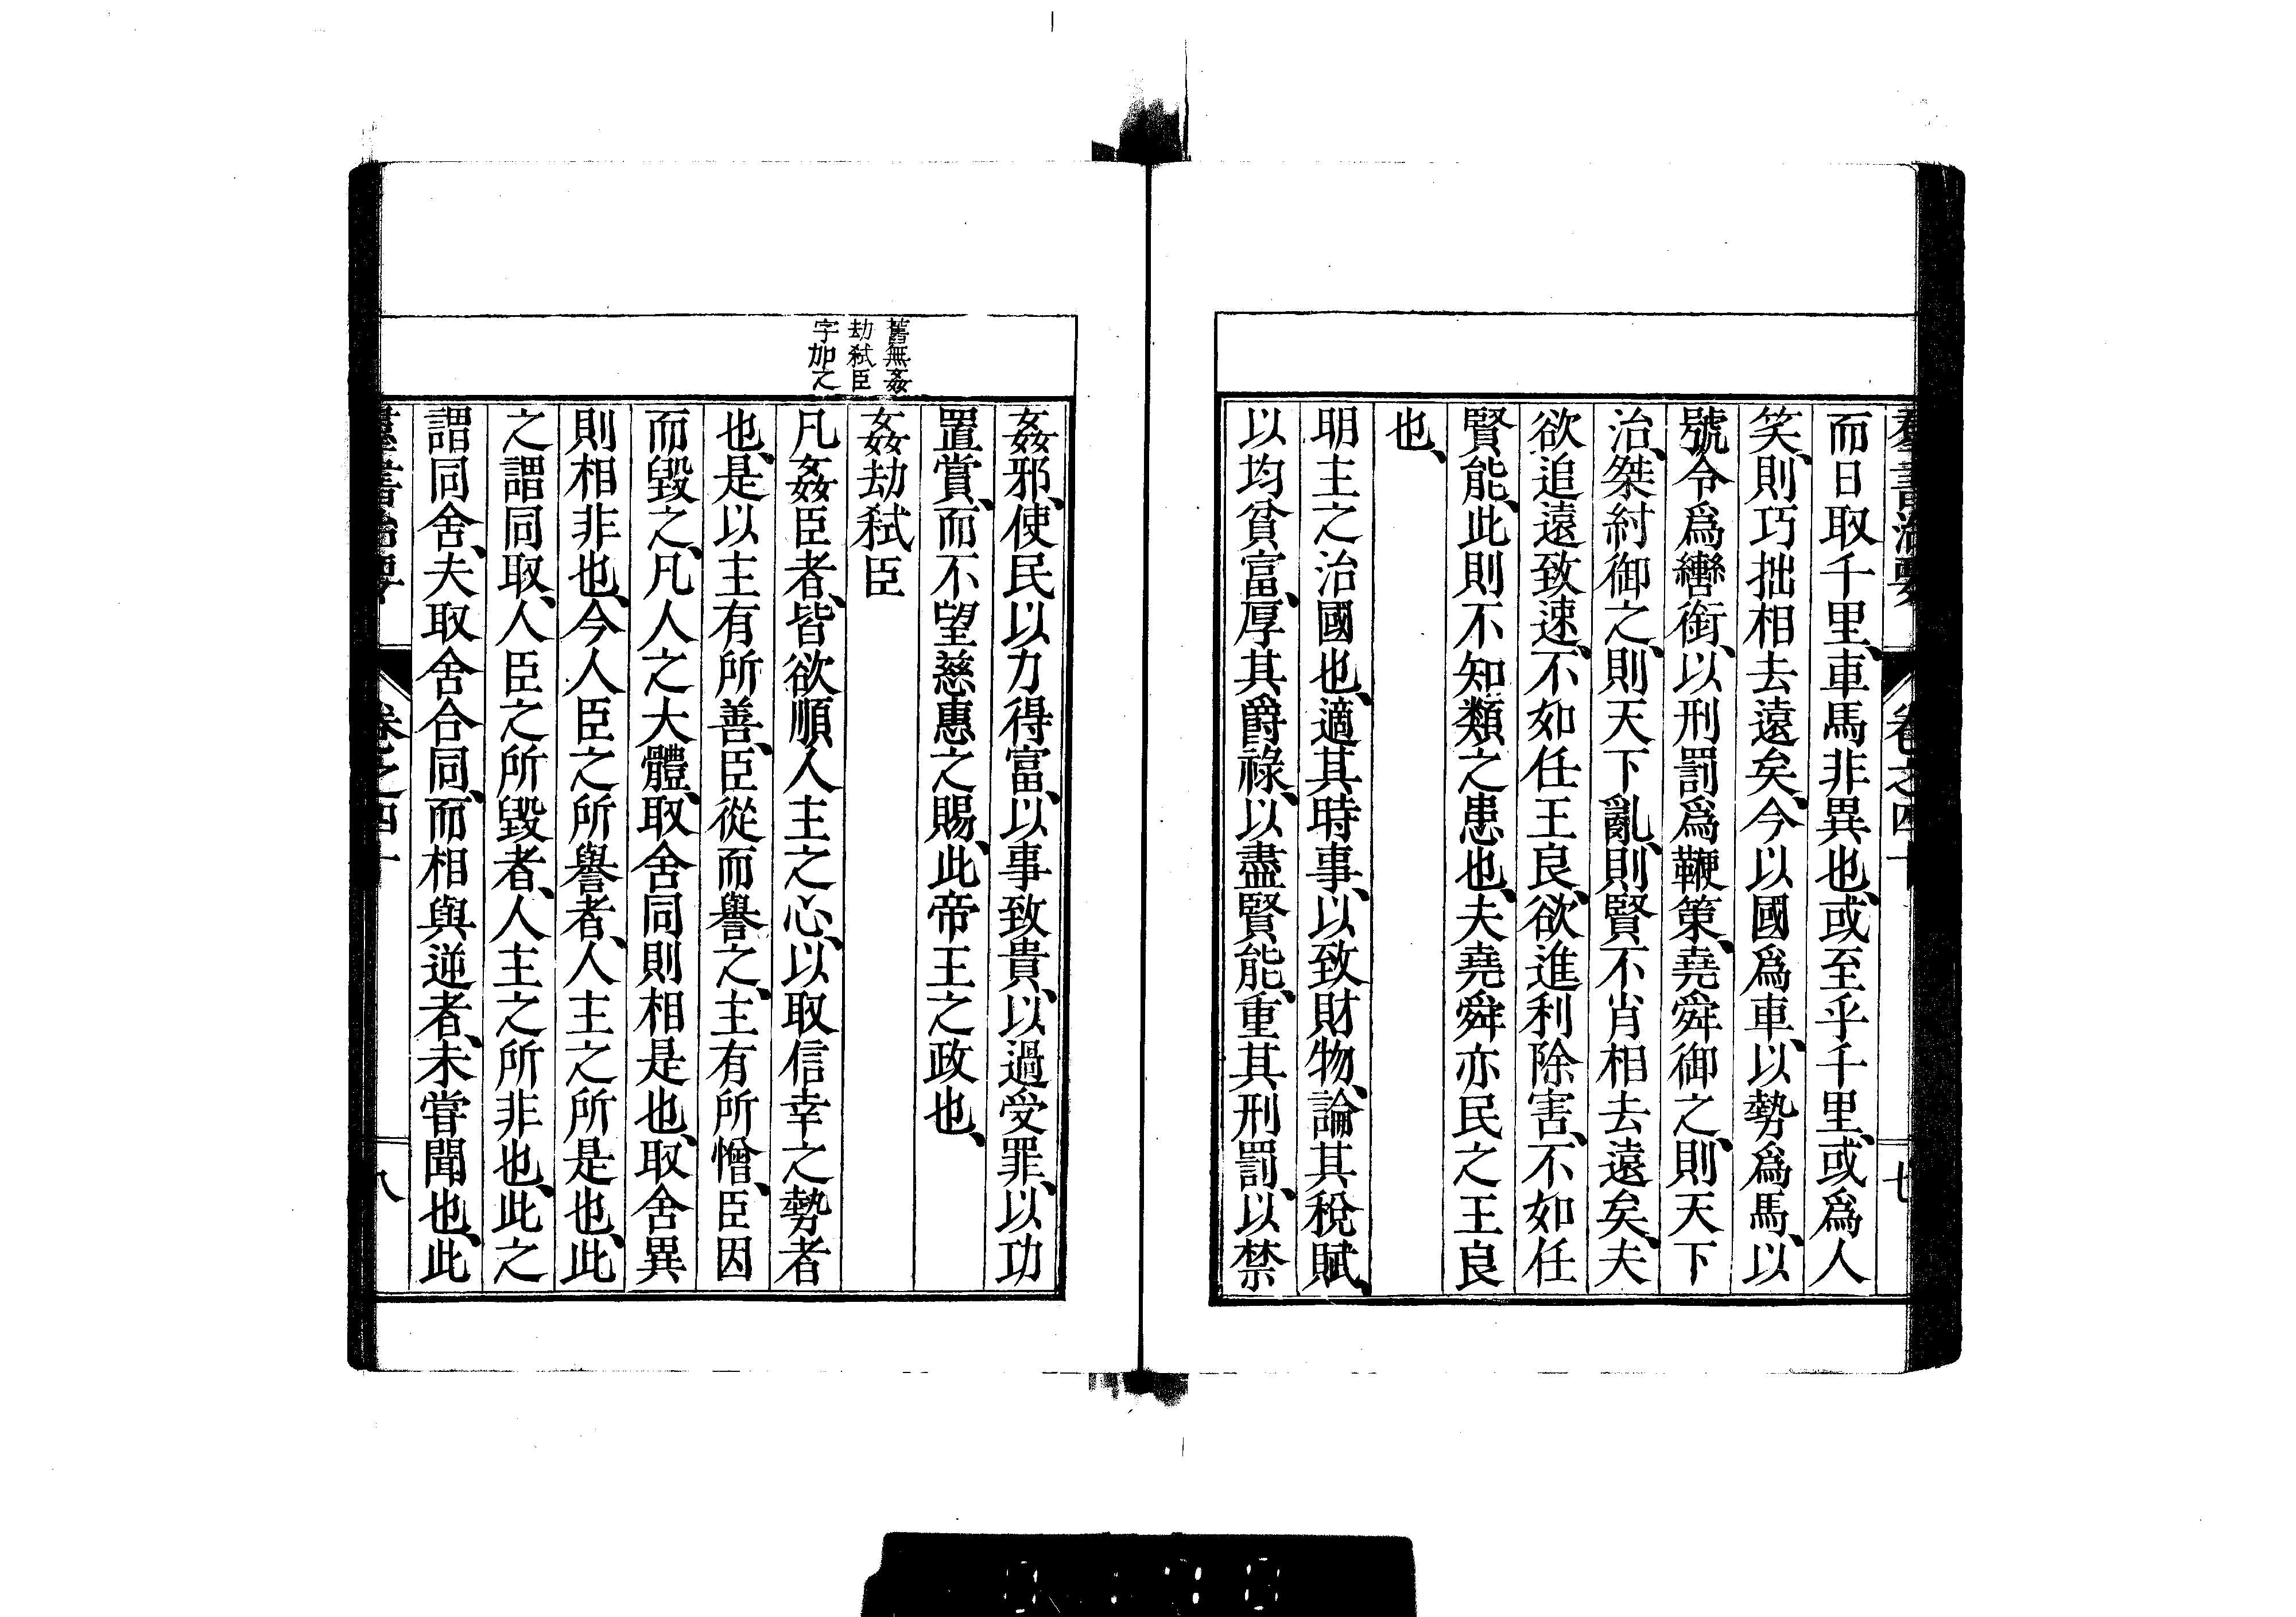 羣書治要 卷之四十 七
而日取千里、車馬非異也、或至乎千里、或爲人
笑、則巧拙相去遠矣、今以國爲車、以勢爲馬、以
號令爲轡銜、以刑罰爲鞭策、堯舜御之、則天下
治、桀紂御之、則天下亂、則賢不肖相去遠矣、夫
欲追遠致速、不如任王良、欲進利除害、不如任
賢能、此則不知類之患也、夫堯舜亦民之王良
也、
明主之治國也、適其時事、以致財物、論其稅賦、
以均貧富、厚其爵祿、以盡賢能、重其刑罰、以禁
姦邪、使民以力得富、以事致貴、以過受罪、以功
置賞、而不望慈惠之賜、此帝王之政也、
舊無姦
劫弑臣
字加之
姦劫弑臣
凡姦臣者、皆欲順人主之心、以取信幸之勢者
也、是以主有所善、臣從而譽之、主有所憎、臣因
而毀之、凡人之大體、取舍同則相是也、取舍異
則相非也、今人臣之所譽者、人主之所是也、此
之謂同取、人臣之所毀者、人主之所非也、此之
謂同舍、夫取舍合同、而相與逆者、未嘗聞也、此
羣書治要 卷之四十 八